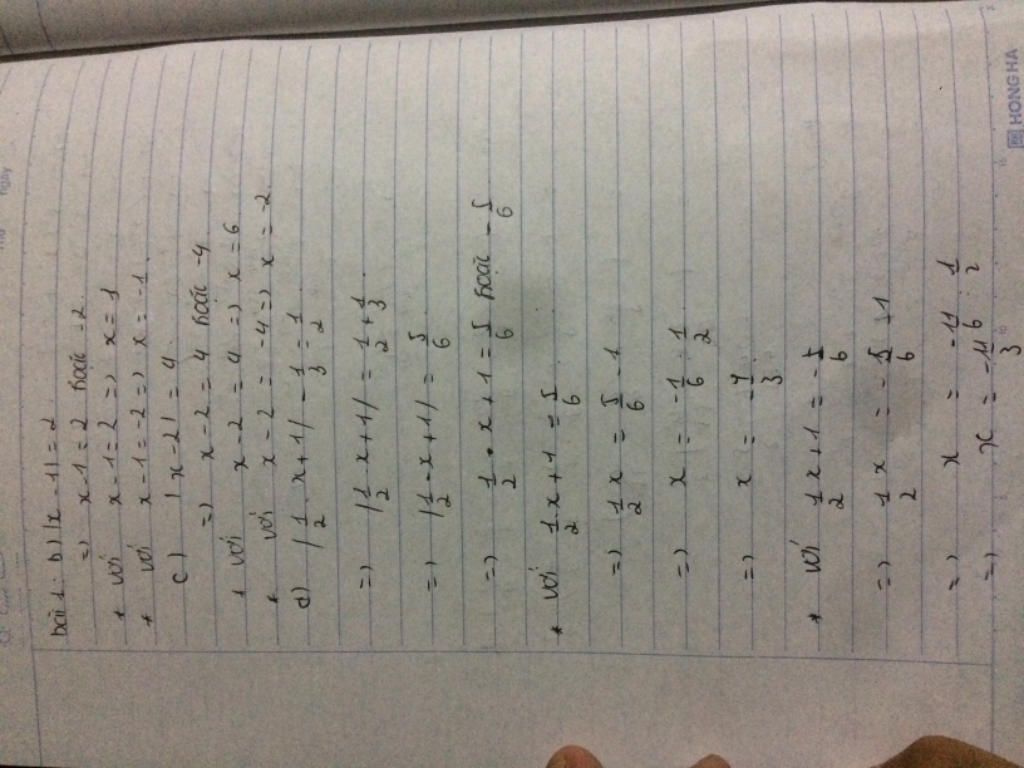 Ngày
bài 1: b) |x - 1| = 2
=) x - 1 = 2 hoặc -2
* với x - 1 = 2 => x = 1
* với x - 1 = -2 => x = -1
c) |x - 2| = 4
=) x - 2 = 4 hoặc -4
* với x - 2 = 4 => x = 6
* với x - 2 = -4 => x = -2
d) |1/2 x + 1| - 1/3 = 1/2
=) |1/2 - x + 1| = 1/2 + 1/3
=) |1/2 - x + 1| = 5/6
=) 1/2 • x + 1 = 5/6 hoặc -5/6
* với 1/2 x + 1 = 5/6
=) 1/2 x = 5/6 - 1
=) x = -1/6 : 1/2
=) x = -1/3
* với 1/2 x + 1 = -5/6
=) 1/2 x = -5/6 - 1
=) x = -11/6 : 1/2
=) x = -11/3
HONG HA